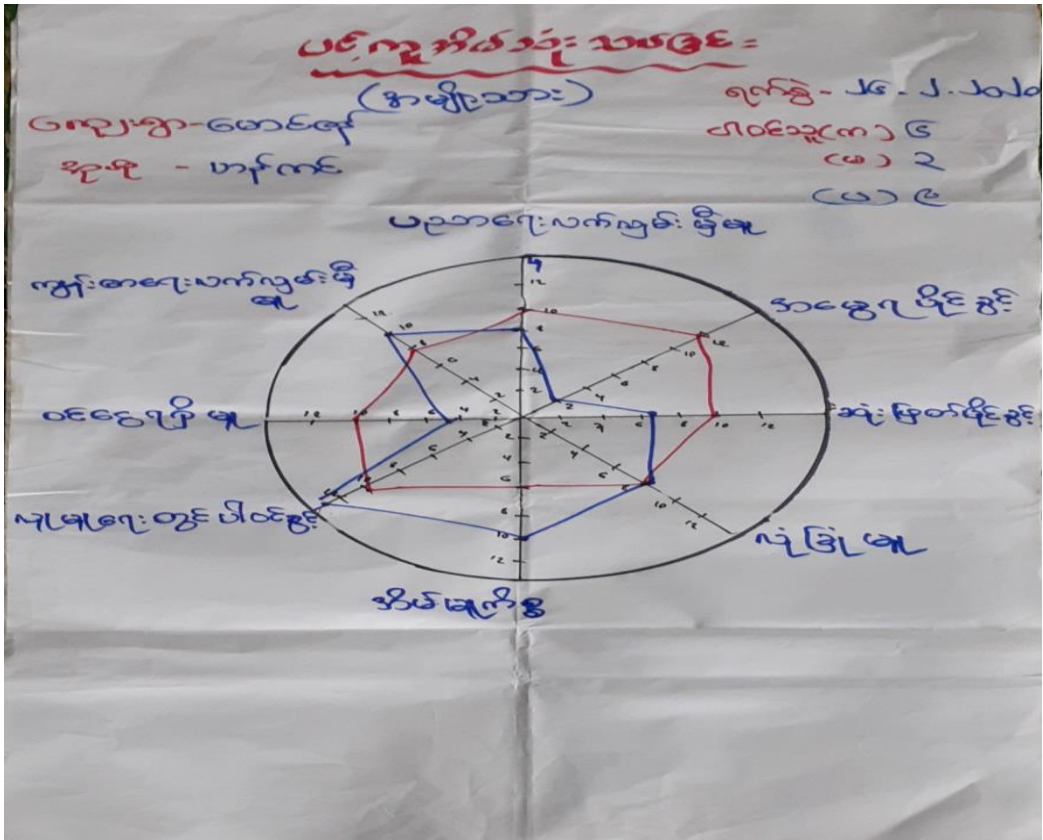 ပင့်ကူအိမ်သုံးသပ်ခြင်း
(အမျိုးသား)
ကျေးရွာ - မောင်ဇော်
အုပ်စု - ဟန်ကင်း
ရက်စွဲ - ၂၆ - ၂ - ၂၀၂၀
ပါဝင်သူ (က) ၆
(မ) ၃
(ပ) ၉
ပညာရေးလက်လှမ်းမှီမှု
ကျန်းမာရေးလက်လှမ်းမှီမှု
အမွေရပိုင်ခွင့်
ဝင်ငွေရရှိမှု
ဆုံးဖြတ်ပိုင်ခွင့်
လူမှုရေးတွင်ပါဝင်ခွင့်
လုံခြုံမှု
အိမ်မှုကိစ္စ